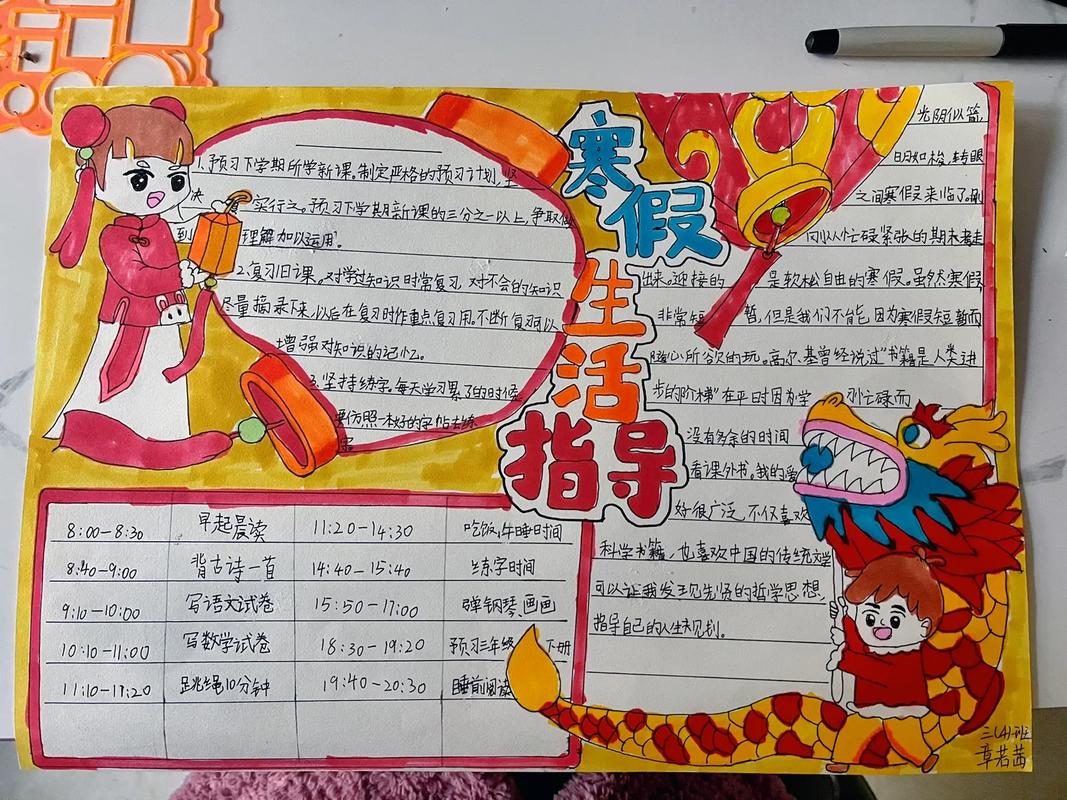 寒假
生活
指导
1.预习下学期所学新课。制定严格的预习计划,坚
决
实行之。预习下学期新课的三分之一以上,争取做
到
理解加以运用。
2.复习旧课。对学过知识时常复习,对不会的知识
尽量摘录下来,以后在复习时作重点复习用。不断复习可以
增强对知识的记忆。
3.坚持练字。每天学习累了的时候
要仿照一本好的字帖去练
字
8:00-8:30 早起晨读 11:20-14:30 吃饭,午睡时间
8:40-9:00 背古诗一首 14:40-15:40 练字时间
9:10-10:00 写语文试卷 15:50-17:00 弹钢琴画画
10:10-11:00 写数学试卷 18:30-19:20 预习三年级下册
11:10-11:20 跳绳10分钟 19:40-20:30 睡前阅读
光阴似箭,
日月如梭,转眼
之间寒假来临了,刚
刚从忙碌紧张的期末考走
出来。迎接的 是轻松自由的寒假。虽然寒假
非常短 暂,但是我们不能,因为寒假短暂而
随心所欲的玩。高尔基曾经说过“书籍是人类进
步的阶梯”在平时因为学 习忙碌而
没有多余的时间
看课外书。我的爱
好很广泛,不仅喜欢
科学书籍,也喜欢中国的传统文学
可以让我发现先贤的哲学思想,
指导自己的人生规划。
三(4)班
章若茜